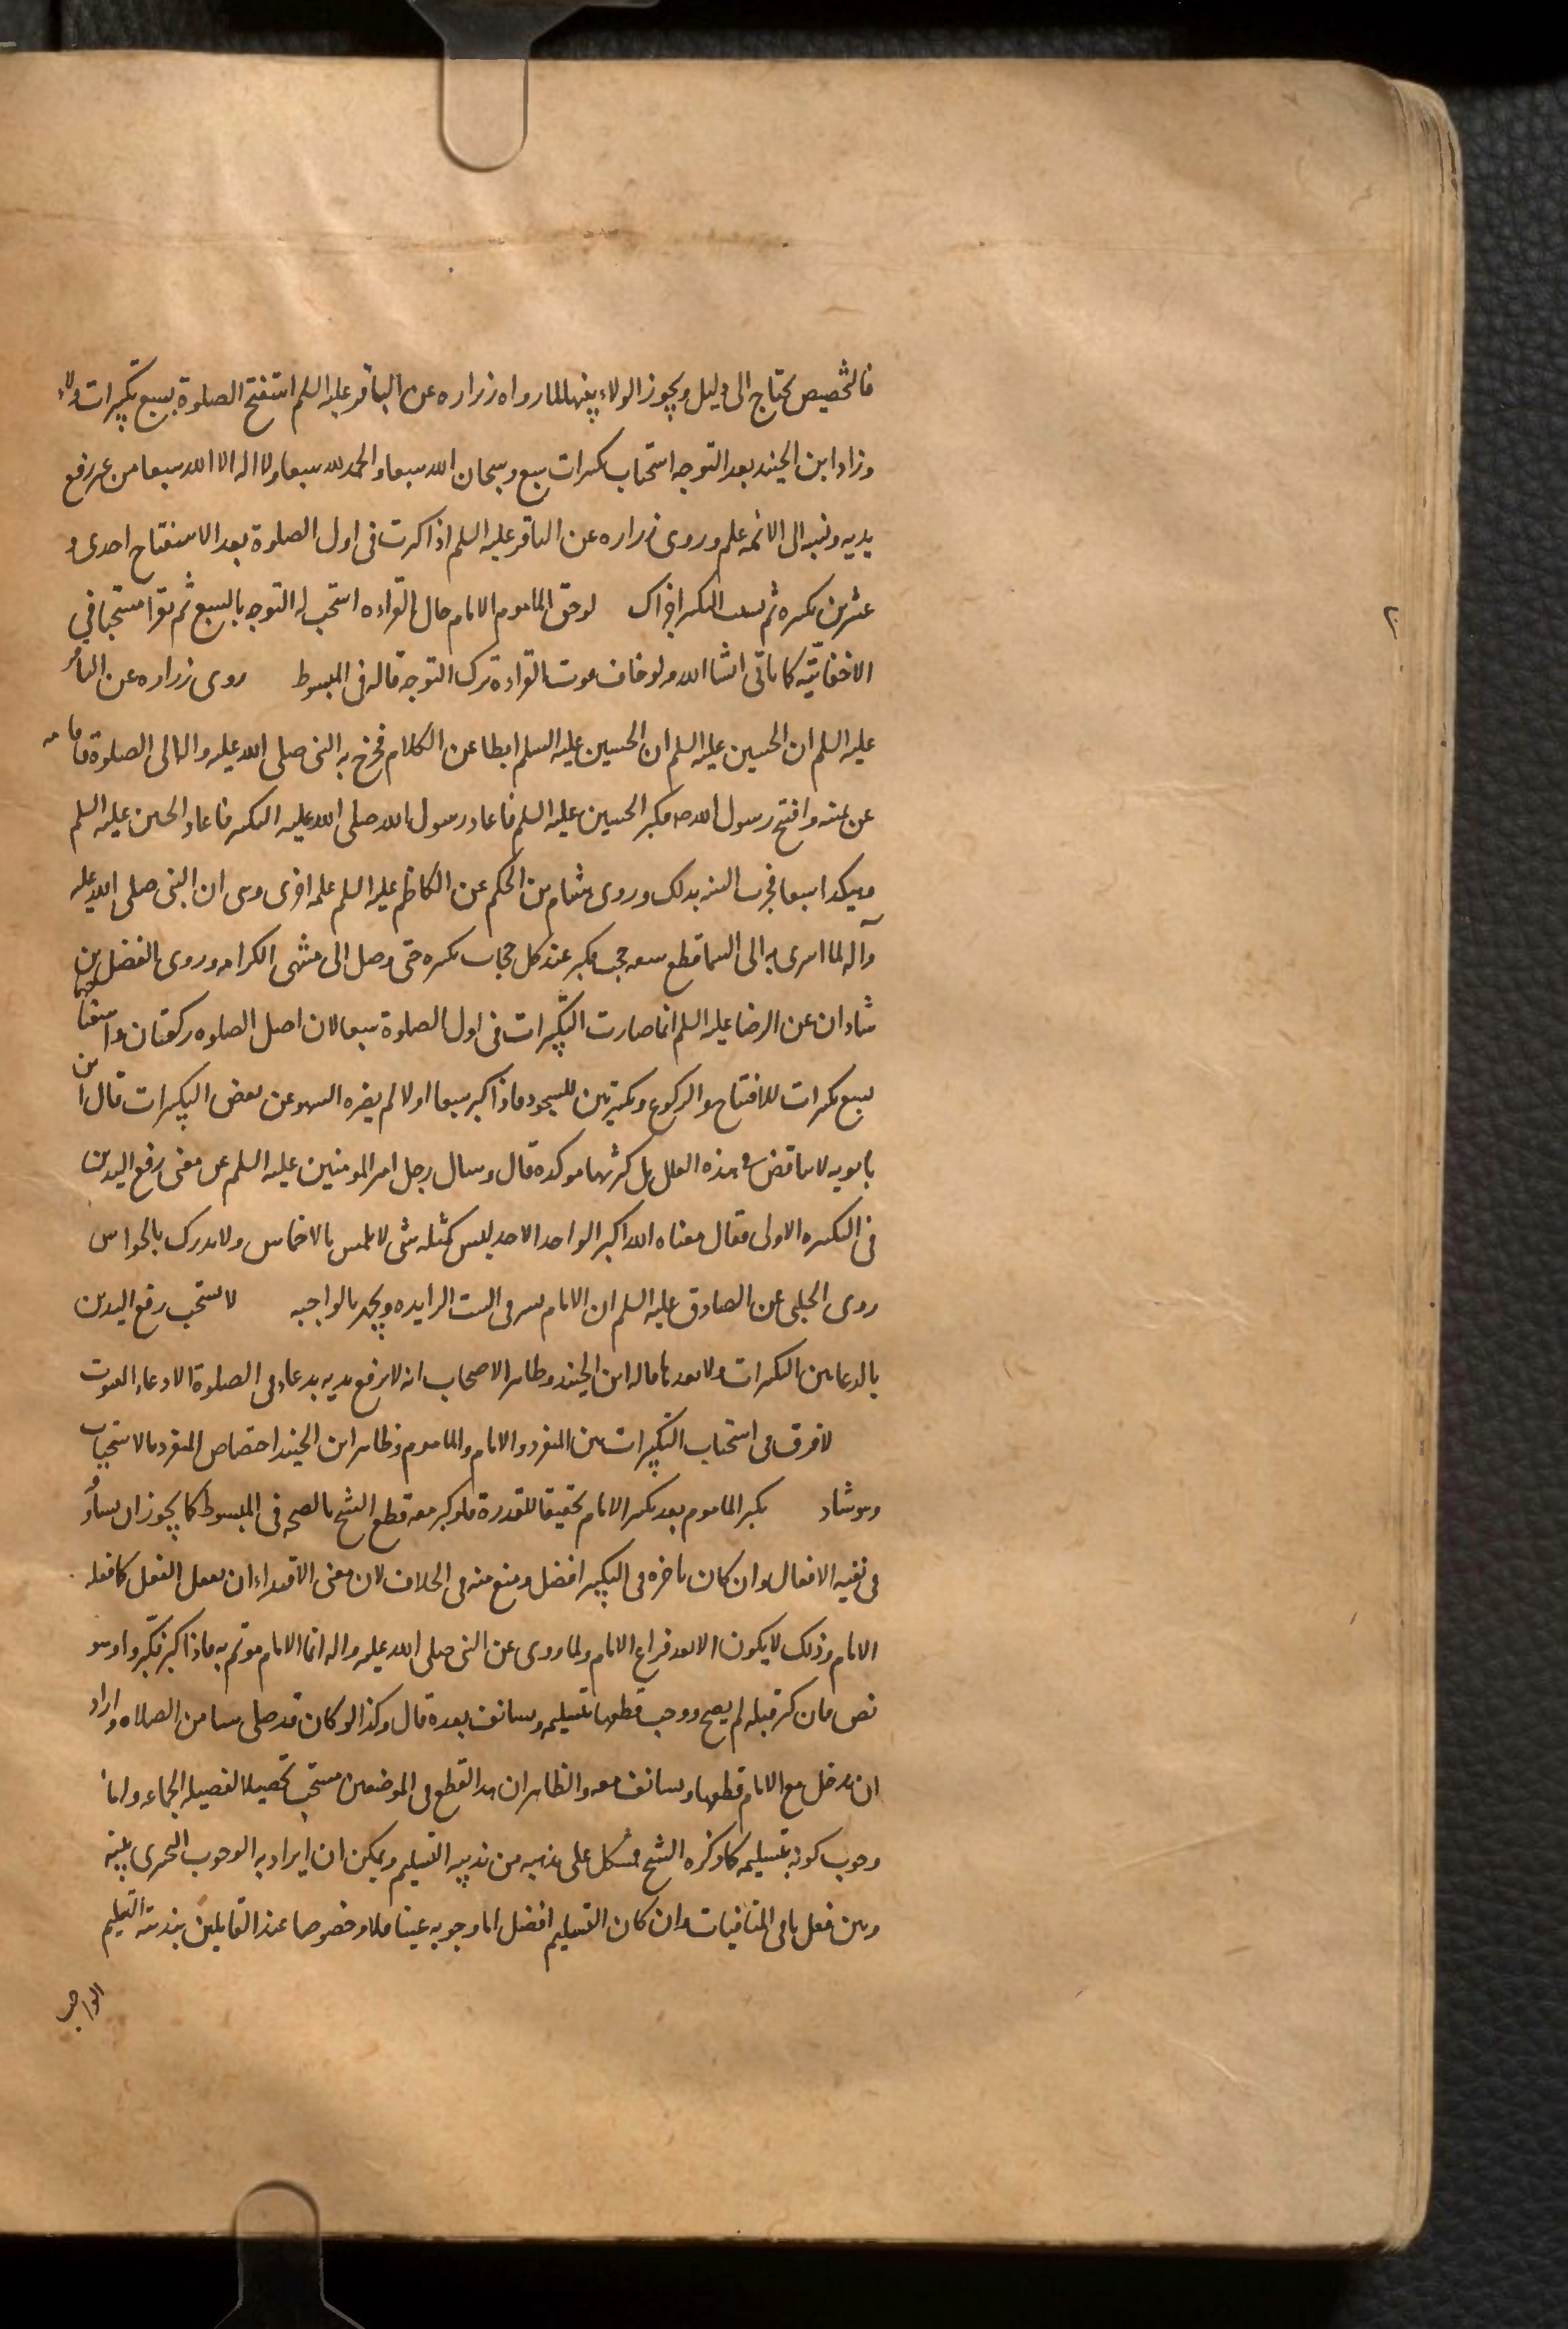 فالتخصيص يحتاج الى دليل ويجوز الولاء بينها لما رواه زراره عن الباقر عليه السلم استفتح الصلوة بسبع تكبيرات ولاء
وزاد ابن الجنيد بعد التوجه استحباب تكبيرات سبع وسبحان الله سبعا والحمد لله سبعا ولا اله الا الله سبعا من غير رفع
يديه ونسبه الى الائمه علم وروى زراره عن الباقر عليه السلم اذا كبرت فى اول الصلوة بعد الاستفتاح احدى و
عشرين تكبيره ثم نسيت التكبير اجزاك لو لحق الماموم الامام حال القراءه استحب له التوجه بالسبع ثم يقرا مستحبا في
الاخفاتيّه كما ياتى انشا الله ولو خاف فوت القراءة ترك التوجه قاله فى المبسوط روى زراره عن الباقر
عليه السلم ان الحسين عليه السلم ان الحسين عليه السلم ابطا عن الكلام فخرج به النبى صلى الله عليه واله الى الصلوة فاقامه
عن يمينه وافتتح رسول الله صه فكبر الحسين عليه السلم فاعاد رسول الله صلى الله عليه التكبير فاعاد الحسين عليه السلم
وهكذا سبعا فجرت السنه بذلك وروى هشام بن الحكم عن الكاظم عليه السلم عله اخرى وهى ان النبى صلى الله عليه
وآله لما اسرى به الى السما قطع سبعه حجب فكبر عند كل حجاب تكبيره حتى وصل الى منتهى الكرامه وروى الفضل بن
شاذان عن الرضا عليه السلم انما صارت التكبيرات فى اول الصلوة سبعا لان اصل الصلوه ركعتان واستفتاحهما
بسبع تكبيرات للافتتاح والركوع وتكبيرتين للسجود فاذا كبر سبعا اولا لم يضره السهو عن بعض التكبيرات قال ابن
بابويه لا تناقض فى هذه العلل بل كثرتها موكده قال وسال رجل امير المومنين عليه السلم عن معنى رفع اليدين
فى التكبيره الاولى فقال معناه الله اكبر الواحد الاحد ليس كمثله شى لا يلمس بالاخماس ولا يدرك بالحواس
روى الحلبى عن الصادق عليه السلم ان الامام يسر فى الست الزايده ويجهر بالواجبه لا يستحب رفع اليدين
بالدعا بين التكبيرات ولا بعدها قاله ابن الجنيد وظاهر الاصحاب انه لا يرفع يديه بدعاء فى الصلوة الا دعاء القنوت
لا فرق فى استحباب التكبيرات بين المنفرد والامام والماموم وظاهر ابن الجنيد اختصاص المنفرد بالاستحباب
وهو شاذ يكبر الماموم بعد تكبير الامام تحقيقا للقدوة فلو كبر معه قطع الشيخ بالصحه فى المبسوط كما يجوز ان يساوقه
فى بقيه الافعال وان كان تاخره فى التكبير افضل ومنع منه فى الخلاف لان معنى الاقتداء ان يفعل الفعل كما فعله
الامام وذلك لا يكون الا بعد فراغ الامام ولما روى عن النبى صلى الله عليه واله انما الامام موتم به فاذا كبر فكبروا وهو
نص فان كبر قبله لم يصح ووجب قطعها بتسليمه ويستانف بعده قال وكذا لو كان قد صلى شيا من الصلاه واراد
ان يدخل مع الامام قطعها ويستانف معه والظاهر ان هذا القطع فى الموضعين مستحب تحصيلا لفضيله الجماعه واما
وجوب كونه بتسليمه كما ذكره الشيخ فمشكل على مذهبه من ندبيه التسليم ويمكن ان يراد به الوجوب التخييرى بينه
وبين فعل باقى المنافيات وان كان التسليم افضل اما وجوبه عينا فلا وخصوصا عند القايلين بندبيته التسليم
الواجب
٢